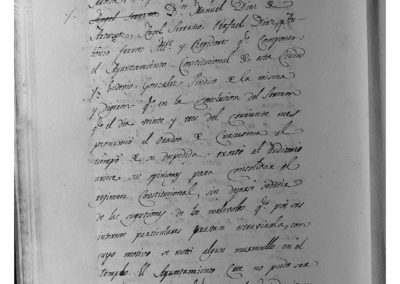 D.n Manuel Diez de
Angel Serrano, Rafael Diez, y An-
tonio frayres Alc.s y Regidores q.e componen
el Ayuntamiento Constitucional de esta Ciudad
y Eusevio Gonzalez Sindico de la misma
y dijeron q.e en la conclusion del Sermon
q.e el dia veinte y tres del corriente mes
pronunció el Orador de Cuaresma al
tiempo de su despedida exortó al Auditorio
uniese sus opiniones para consolidar el
regimen Constitucional, sin dejarse seducir
de las sugestiones de los malevolos q.e por sus
intereses particulares tratan estraviarla, con
cuyo motivo se notó algun murmullo en el
templo. El Ayuntamiento Cree no pudo ser